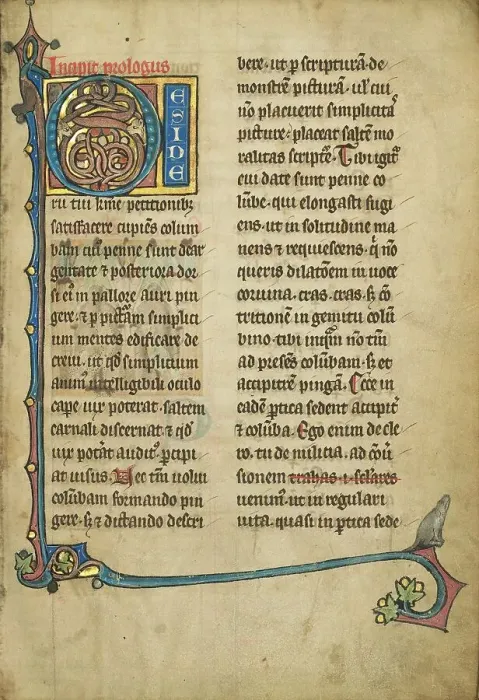 Incipit prologus
DESIDE
rii tui kr̄me petitionibꝫ
satisfacere cupiēs colum
bam cuiꝰ penne sunt dear
gentate ⁊ posteriora dor
si eiꝰ in pallore auri pin
gere. ⁊ ꝑ picturam simplici
um mentes edificare de
crevi. ut qd̛ simplicium
animꝰ intelligibili oculo
cape uix poterat. saltem
carnali discernat. ⁊ qd̛
uix potāt auditꝰ. ꝑcipi
at uisus. Nec tm̄ uolui
columbam formando pin
gere. sꝫ ⁊ dictando descri
bere. ut ꝑ scripturā. de
monstrē picturā. ut cui
nō placuerit simplicitaˢ
picture. placeat saltē mo
ralitas scriptē. Tibi igiᵗ
cui date sunt penne co
lūbe. qui elongasti fugi
ens. ut in solitudine ma
neres ⁊ requiescens. qͥ nō
queris dilatōem in uoce
coruina. cras. cras. sꝫ cō
tritionē in gemitu colū
bino. tibi inqͣm nō tm̄
ad presēs columbam. sꝫ et
accipitrē pingā. Ecce in
eadē ꝑtica sedent accipit̛
⁊ columba. Ego enim de cle
ro. tu de milicia. ad cōư
sionem trahas ⁊ sc̄lares
uenim̄. ut in regulari
uita. quasi in ꝑtica sede